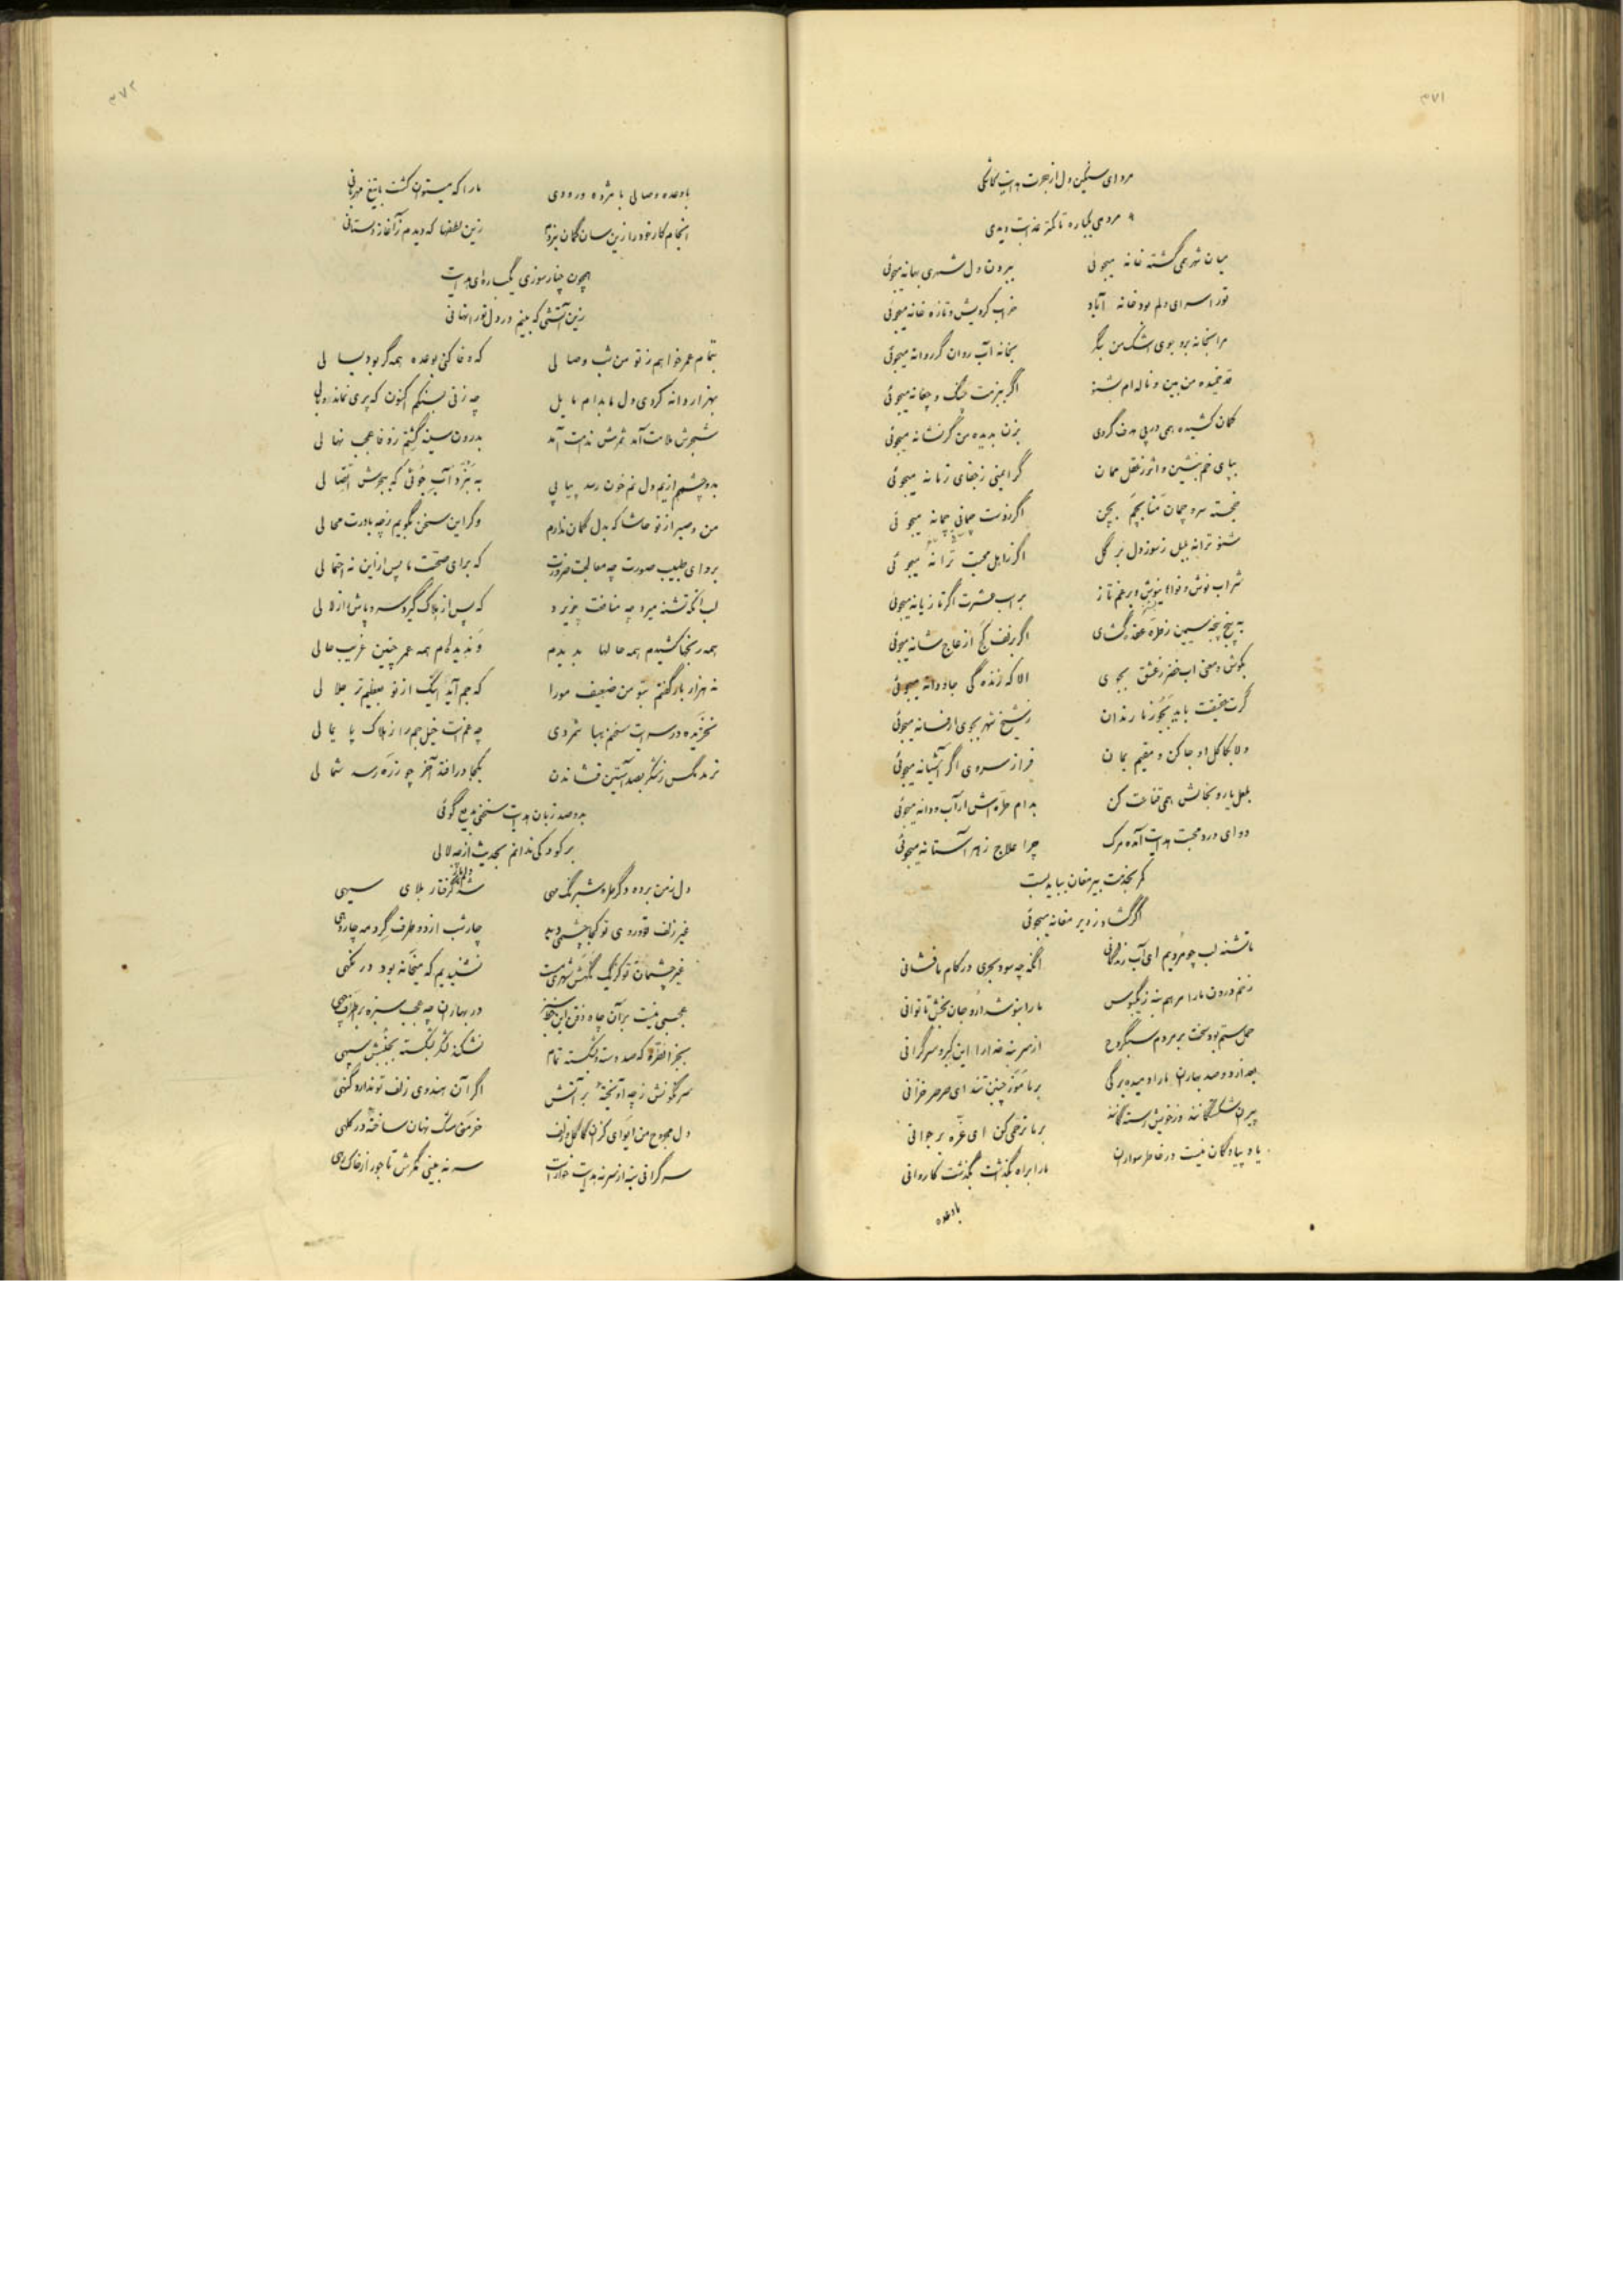 ۳۷۱
مرو ای سنگین دل از هدایت
میان شهر همی گشته خانه میجوئی
برون دل شهری بهانه میجوئی
تو را سرای دلم بود خانه آباد
خراب کردیش و تازه خانه میجوئی
مرا بخانه برو جوی اشک من بنگر
بخانه آب روان گر روانه میجوئی
قد خمیده من بین و ناله ام بشنو
اگر ببزمت چنگ و چغانه میجوئی
کمان کشیده همی در پی هدف گردی
بزن بدیده من گر نشانه میجوئی
بپای خم بنشین و از عقل ممان
گر ایمنی ز جفای زمانه میجوئی
خجسته سرو چمان بچمن
اگر ز دست چمانی چمانه میجوئی
شنو ترانه بلبل ز سوز دل بر گل
اگر ز اهل محبت ترانه میجوئی
شراب نوش و نوا نیوش و بر غم تاز
بر اسب عشرت اگر تازیانه میجوئی
به پنج پنجه سیمین ز طره عقده گشای
اگر بزلف کج از عاج شانه میجوئی
بکوش و معنی آب خضر ز عشق بجوی
الا که زنده گی جاودانه میجوئی
گرت حقیقت باید بجو ز ما رندان
ز شیخ شهر بجوی ار فسانه میجوئی
دلا بکاکل او جا کن و مقیم بمان
فراز سروی اگر آشیانه میجوئی
بلعل یار و بخالش همی قناعت کن
بدام طره اش ار آب و دانه میجوئی
دوای درد محبت هدایت آمد مرگ
چرا علاج ز هر آستانه میجوئی
کمر بخدمت پیر مغان بباید بست
اگر گشاد ز دیر مغانه میجوئی
ما تشنه لب چو مردیم ای آب زندگانی
آنگه چه سود بحری در کام ما فشانی
زخم درون ما را مرهم نه
ما را بنوشدارو جان بخش تا توانی
حمل ستم بود سخت بر مردم سبکروح
از سر بنه خدا را این کبر و سرگرانی
بعد از دو صد بهاران ما را دمیده برگی
بر ما موز چنین تند ای صرصر خزانی
بر ما ترحمی کن ای غره بر جوانی
یاد پیادگان نیست در خاطر سواران
ما را براه بگذاشت بگذشت کاروانی
با وعده
۳۷۲
با وعده وصالی با مژده درودی
ما را که میتوان کشت با تیغ مهربانی
انجام کار خود را زین سان گمان نبردم
زین لطفها که دیدم ز آغاز دلستانی
همچون چنار سوزی یکباره ای هدایت
زین آتشی که بینم در دل تو را نهانی
بتمام عمر خواهم ز تو من شب وصالی
که وفا کنی بوعده همه گر بود بسالی
بهزار دانه کردی دل ما بدام مایل
چه زنی بسنگم اکنون که پری نماند و بالی
شجرش ملامت آمد ثمرش ندامت آمد
بدرون سینه گشتم ز وفا عجب نهالی
بدو چشمم از یم دل نم خون رسد پیاپی
من و صبر از تو حاشا که بدل گمان ندارم
وگر این سخن بگویم ز چه باورت محالی
برو ای طبیب صورت چه معالجت ضرورت
که برای صحت ما پس از این نه احتمالی
لب آنکه تشنه میرد چه منافعت پذیرد
که پس از هلاک گیرد سر و پاش از زلالی
همه رنجها کشیدم همه حالها بدیدم
و ندیده ام همه عمر چنین غریب حالی
نه هزار بار گفتم بتو من ضعیف مورا
که جم آید اینک از تو بعظیم تر جلالی
نخزیده در سرایت سخنم هبا شمردی
چه غم است خیل جم را ز هلاک پایمالی
نرمد مگس ز شکر بصد آستین فشاندن
بکجا در افتد آخر چو ز ره رسد شمالی
بدو صد زبان هدایت سخنی بدیع گوئی
بر کودکی ندانم بحدیث از چه لالی
دل ز من برده دگر طره شبرنگ مهی
شد گرفتار بلای سیهی
غیر زلف تو و روی تو کجا چشمی دید
چار شب از دو طرف گرد مه چاردهی
غیر چشمان تو کز یک نگهش شهری مست
نشنیدیم که میخانه بود در نگهی
عجبی نیست بر آن چاه ذقن این خط سبز
در بهاران چه عجب سبزه بر اطراف چهی
بجز آن طره که صد دسته شکسته تمام
نشکند لشکر بشکسته بجنبش سپهی
سرنگونش ز چه آویخته بر آتش
اگر آن هندوی زلف تو ندارد گنهی
دل مجروح من ای وای کزان کاکل و زلف
سر گرانی بنه از سر نه هدایت خوار است
سر نه بینی مگرش تا جور از خاک رهی